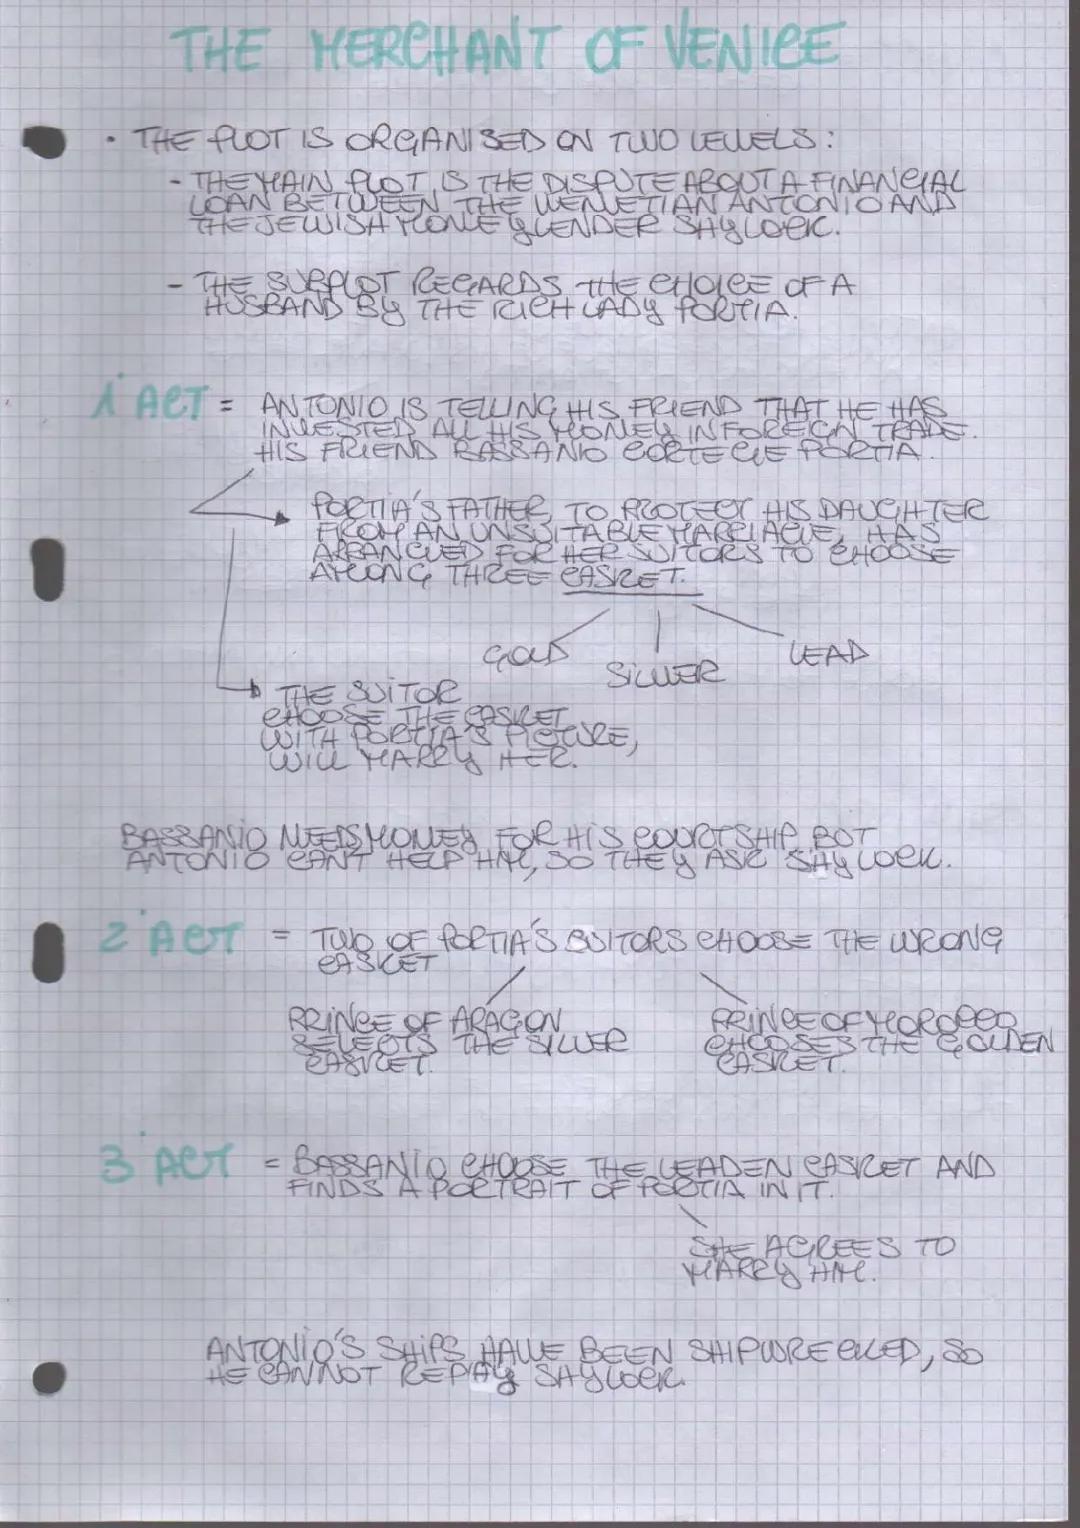 THE MERCHANT OF VENICE
• THE PLOT IS ORGANISED ON TWO LEVELS:
- THE MAIN PLOT IS THE DISPUTE ABOUT A FINANCIAL
LOAN BETWEEN THE VENETIAN ANTONIO AND
THE JEWISH MONEYLENDER SHYLOCK.
- THE SUBPLOT REGARDS THE CHOICE OF A
HUSBAND BY THE RICH LADY PORTIA.
1° ACT = ANTONIO IS TELLING HIS FRIEND THAT HE HAS
INVESTED ALL HIS MONEY IN FOREIGN TRADE.
HIS FRIEND BASSANIO PORTIA.
PORTIA'S FATHER, TO PROTECT HIS DAUGHTER
FROM AN UNSUITABLE MARRIAGE, HAS
ARRANGED FOR HER SUITORS TO CHOOSE
AMONG THREE CASKET.
GOLD
SILVER
LEAD
THE SUITOR
CHOOSE THE CASKET
WITH PORTIA'S PICTURE,
WILL MARRY HER.
BASSANIO NEEDS MONEY FOR HIS COURTSHIP BUT
ANTONIO CAN'T HELP HIM, SO THEY ASK SHYLOCK.
2° ACT = TWO OF PORTIA'S SUITORS CHOOSE THE WRONG
CASKET
PRINCE OF ARAGON
SELECTS THE SILVER
CASKET.
PRINCE OF MOROCCO
CHOOSES THE GOLDEN
CASKET.
3° ACT = BASSANIO CHOOSE THE LEADEN CASKET AND
FINDS A PORTRAIT OF PORTIA IN IT.
SHE AGREES TO
MARRY HIM.
ANTONIO'S SHIPS HAVE BEEN SHIPWRECKED, SO
HE CANNOT REPAY SHYLOCK.